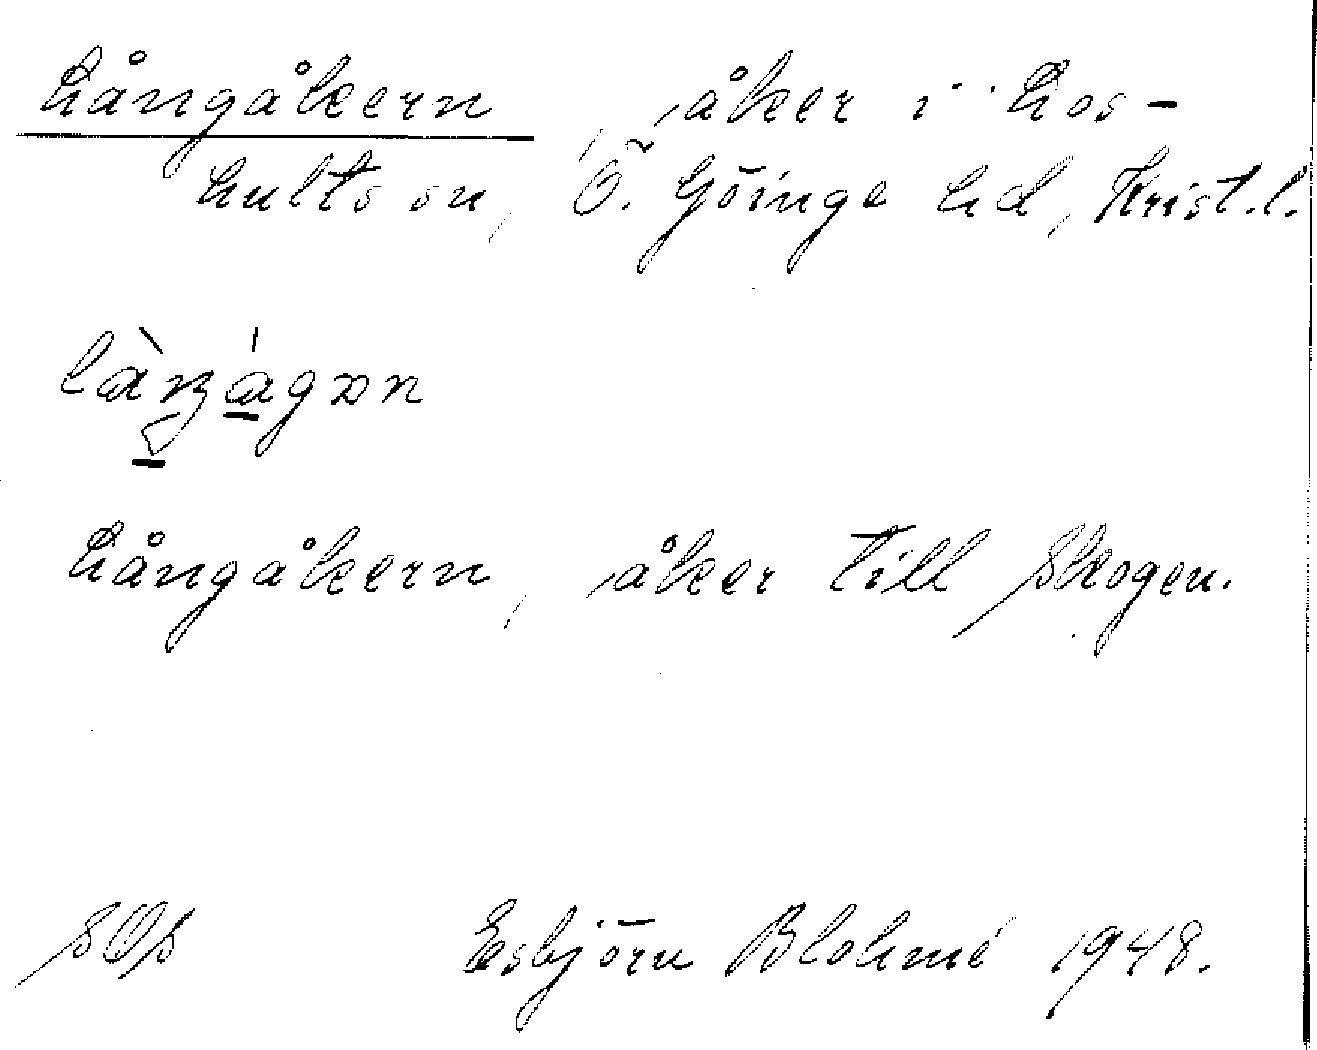 Långåkern, åker i Los-
hults sn, Ö. Göinge hd, Krist. l.
Långåkern, åker till Skogen.
SOS Esbjörn Blohmé 1948.